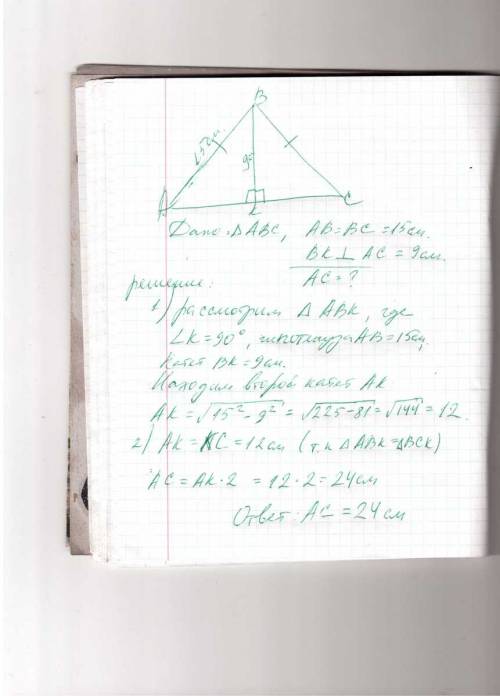 B
15см.
9
A
C
Дано: ΔABC, AB=BC=15см.
BK⊥AC = 9см.
AC=?
решение:
1) рассмотрим Δ ABK, где
∠K=90°, гипотенуза AB=15см,
Катет BK=9см.
Находим второй катет AK
AK=√15²-9² = √225-81 = √144 = 12.
2) AK=KC=12см (т.к ΔABK=ΔBCK)
AC=AK·2 = 12·2=24см
Ответ: AC=24см